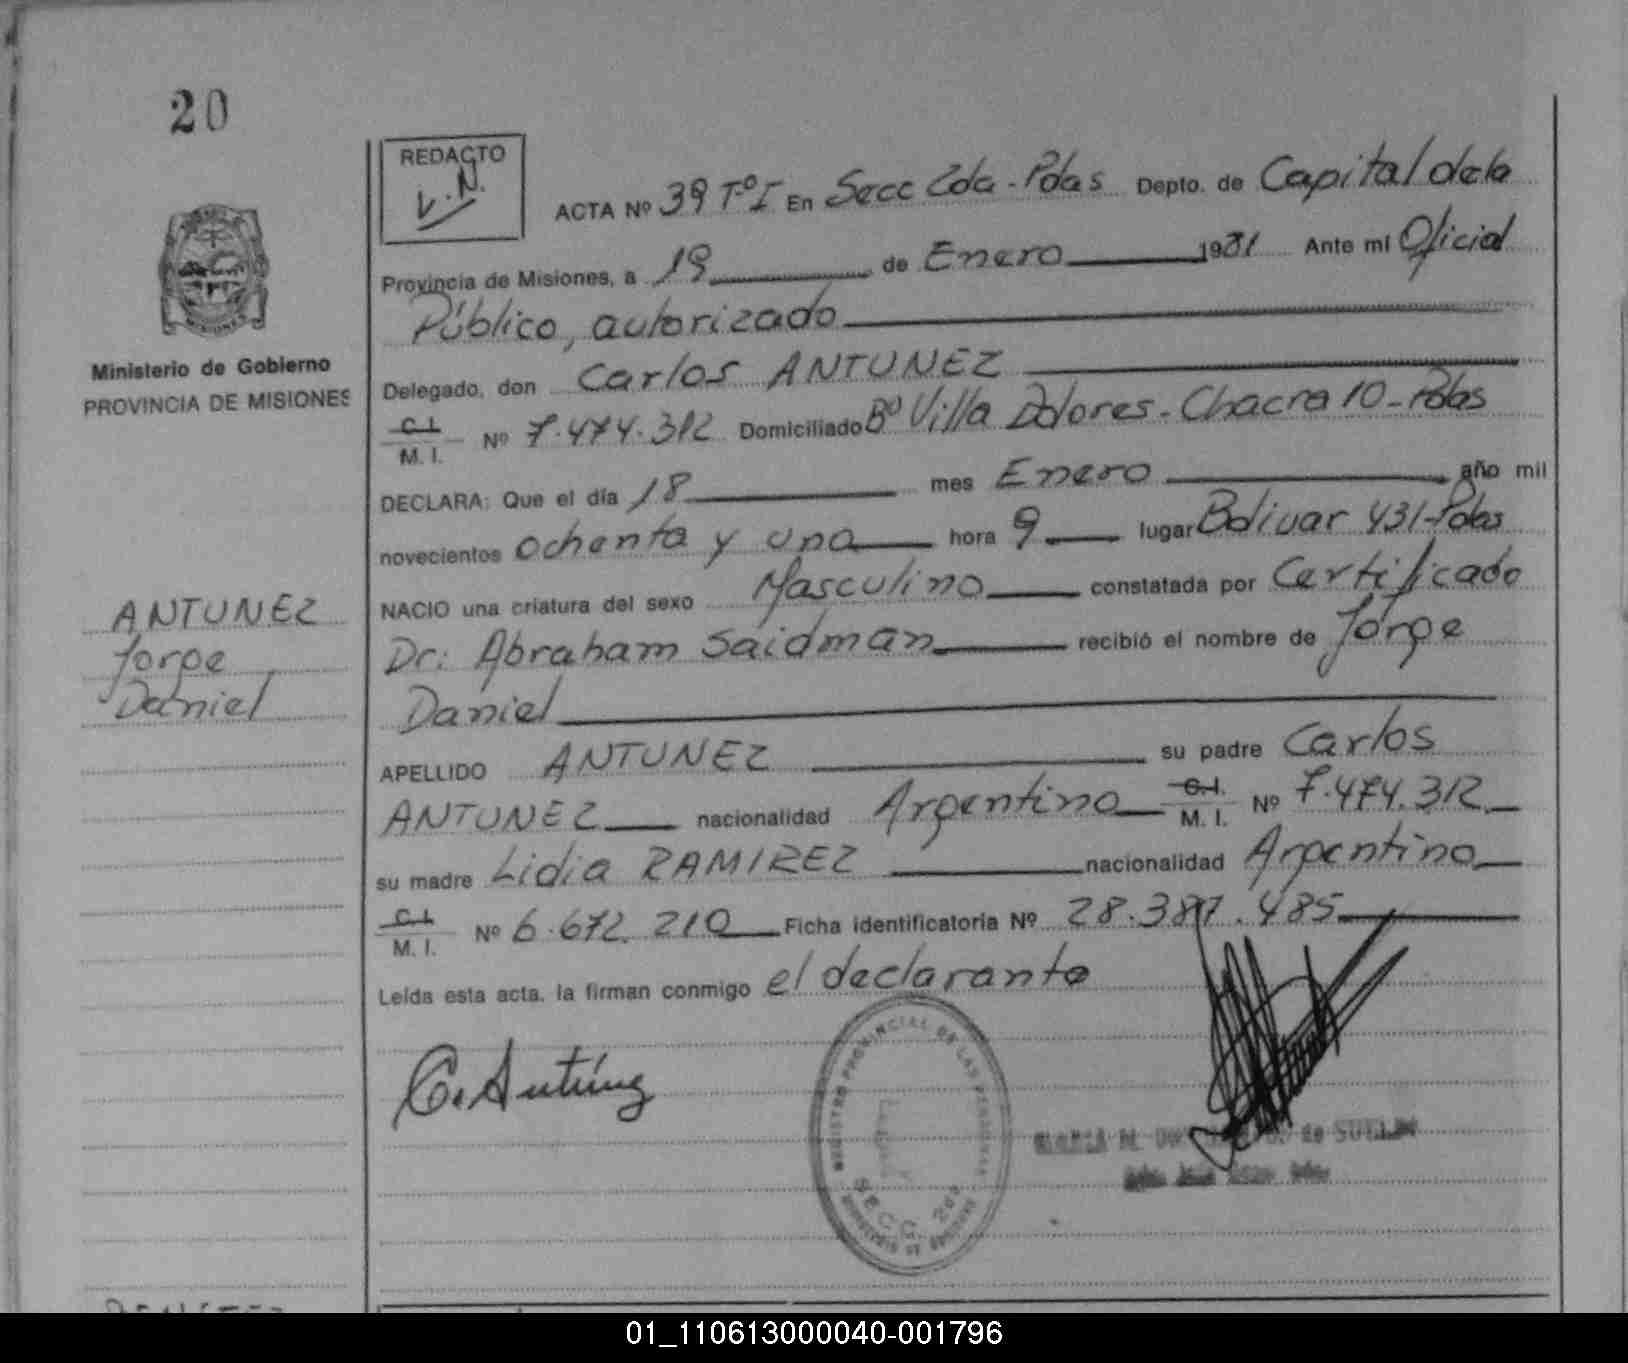 20
REDACTO
V.N.
ACTA Nº 39 Tº I En Secc 2da - Pdas Depto. de Capital de la
Provincia de Misiones, a 19 de Enero 1981 Ante mí Oficial
Público, autorizado
Ministerio de Gobierno
PROVINCIA DE MISIONES
Delegado, don Carlos ANTUNEZ
C.I. M.I. Nº 7.474.312 Domiciliado Bº Villa Dolores - Chacra 10 - Pdas
DECLARA: Que el día 18 mes Enero año mil
novecientos ochenta y uno hora 9 lugar Bolivar 431 - Pdas
NACIO una criatura del sexo Masculino constatada por Certificado
Dr: Abraham Saidman recibió el nombre de Jorge
Daniel
ANTUNEZ
Jorge
Daniel
APELLIDO ANTUNEZ su padre Carlos
ANTUNEZ nacionalidad Argentino C.I. M.I. Nº 7.474.312
su madre Lidia RAMIREZ nacionalidad Argentino
C.I. M.I. Nº 6.672.210 Ficha identificatoria Nº 28.387.485
Leída esta acta, la firman conmigo el declarante
C. Antúnez
REGISTRO PROVINCIAL DE LAS PERSONAS
SECC. 2da
MARIA M. de
01_110613000040-001796